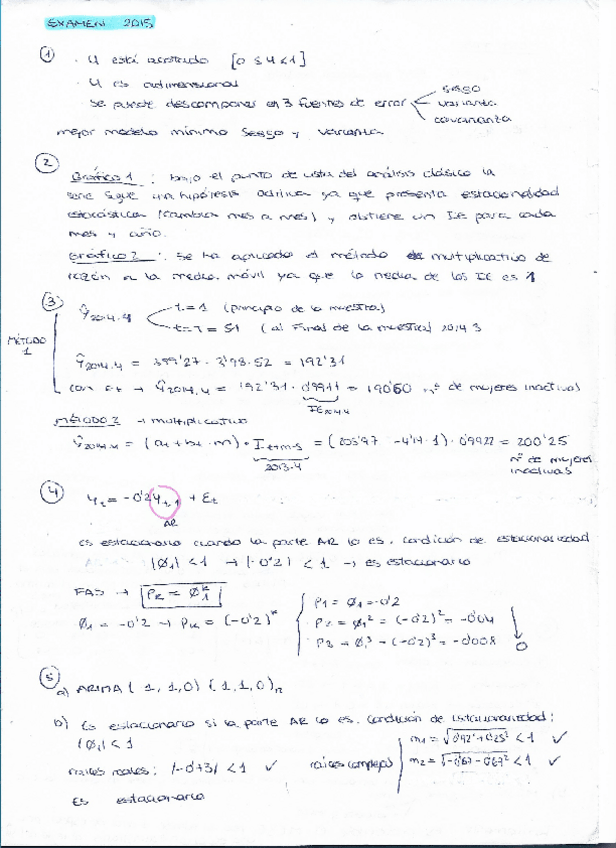 EXAMEN 2015
① · U está acotado [0 ≤ U < 1]
· U es adimensional
· Se puede descomponer en 3 fuentes de error
sesgo
varianza
covarianza
mejor modelo mínimo sesgo y varianza
②
Gráfico 1 : bajo el punto de vista del análisis clásico la
serie sigue una hipótesis aditiva ya que presenta estacionalidad
estocástica (cambia mes a mes) y obtiene un IE para cada
mes y año.
Gráfico 2 : Se ha aplicado el método de multiplicativo de
razón a la media móvil ya que la media de los IE es 1
③
MÉTODO 1
Ŷ2014.4
t=1 (principio de la muestra)
t=T=51 (al final de la muestra) 2014 3
Ŷ2014.4 = 399'27 - 3'98·52 = 192'31
con Et → Ŷ2014.4 = 192'31 · 0'9911 = 190'60 nº de mujeres inactivas
IE2014.4
MÉTODO 2 → multiplicativo
Ŷ2014.4 = (at + bt · m) · It+m-s = (205'97 - 4'14·1) · 0'9922 = 200'25
2013.4
nº de mujeres
inactivas
④ Yt = -0'2 Yt-1 + Et
AR
es estacionario cuando la parte AR lo es. Condición de estacionariedad
|ϕ1| < 1 → |-0'2| < 1 → es estacionario
FAS → ρk = ϕ1^k
ϕ1 = -0'2 → ρk = (-0'2)^k
ρ1 = ϕ1 = -0'2
ρ2 = ϕ1² = (-0'2)² = -0'04
ρ3 = ϕ1³ = (-0'2)³ = -0'008
0
⑤
a) ARIMA (1,1,0) (1,1,0)
b) Es estacionario si la parte AR lo es. Condición de estacionariedad:
|ϕ1| < 1
raíces reales: |-0'73| < 1 ✓
raíces complejas
m1 = √0'92² + 0'25² < 1 ✓
m2 = √-0'67 - 0'67² < 1 ✓
Es estacionario